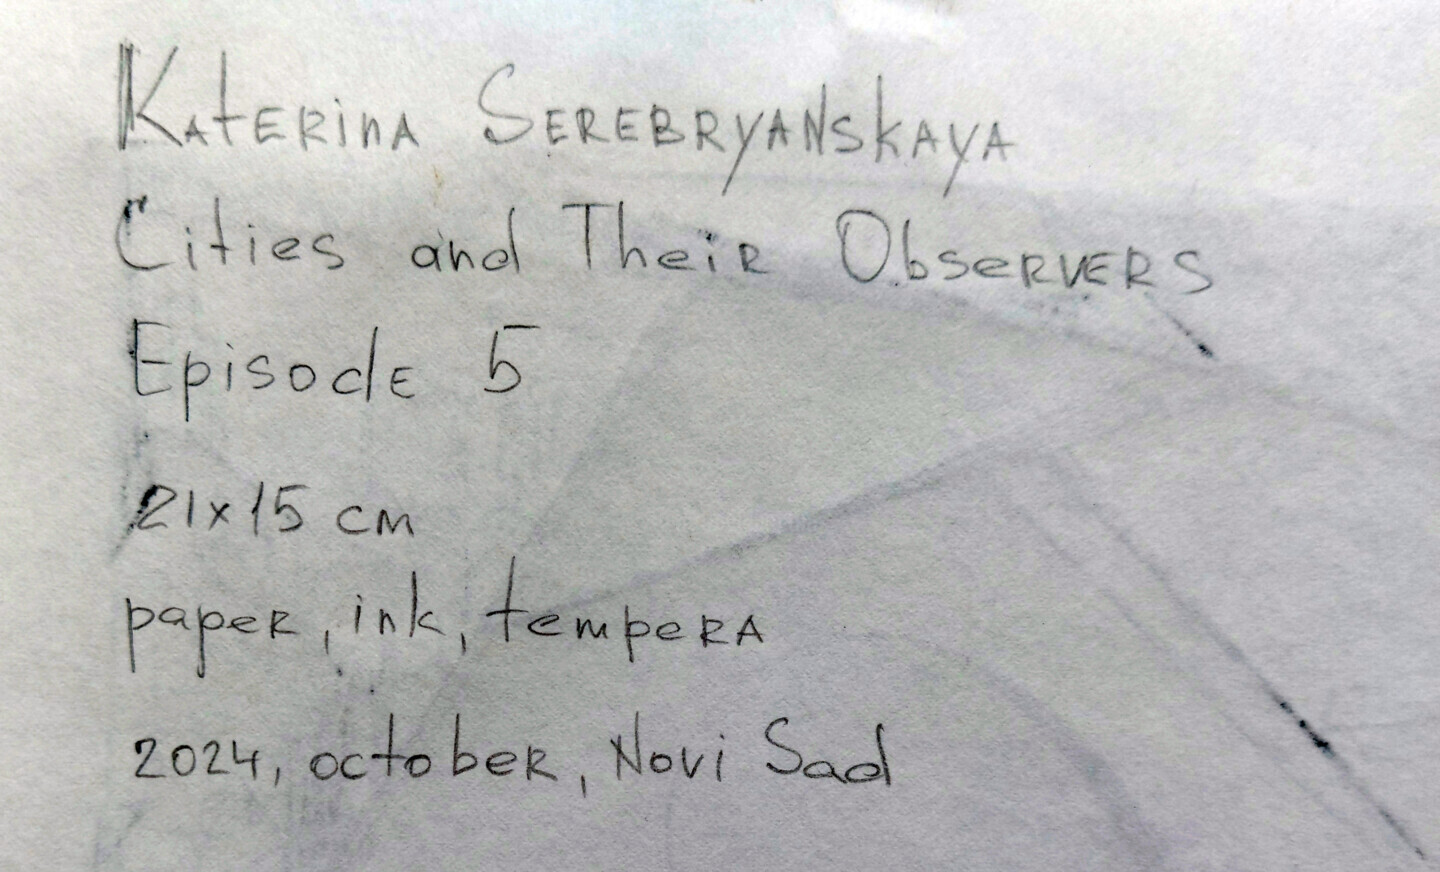 Katerina Serebryanskaya
Cities and Their Observers
Episode 5
21x15 cm
paper, ink, tempera
2024, october, Novi Sad